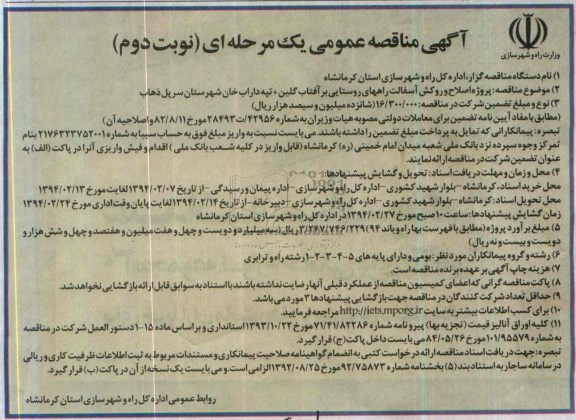 وزارت راه و شهرسازی
آگهی مناقصه عمومی یک مرحله ای (نوبت دوم)
۱) نام دستگاه مناقصه گزار، اداره کل راه و شهرسازی استان کرمانشاه
۲) موضوع مناقصه: پروژه اصلاح و روکش آسفالت راههای روستایی بر آفتاب گلین + تپه داراب خان شهرستان سرپل ذهاب
۳) نوع و مبلغ تضمین شرکت در مناقصه: ۱۶/۳۰۰/۰۰۰ (شانزده میلیون و سیصد هزار ریال)
(مطابق با مفاد آیین نامه تضمین برای معاملات دولتی مصوبه هیات وزیران به شماره ۴۲۹۵۶/ت۲۸۴۹۳ مورخ ۸۲/۸/۱۱ و اصلاحیه آن)
تبصره: پیمانکارانی که تمایل به پرداخت مبلغ تضمین را داشته باشند، می بایست نسبت به واریز مبلغ فوق به حساب سیبا به شماره ۲۱۷۶۳۲۳۷۵۲۰۰۱ بنام
تمرکز وجوه سپرده نزد بانک ملی شعبه میدان امام خمینی (ره) کرمانشاه (قابل واریز در کلیه شعب بانک ملی) اقدام و فیش واریزی آنرا در پاکت (الف) به
عنوان تضمین شرکت در مناقصه ارائه نمایند.
۴) محل و زمان و مهلت دریافت اسناد: تحویل و گشایش پیشنهادها:
محل خرید اسناد، کرمانشاه-بلوار شهید کشوری-اداره کل راه و شهرسازی-اداره پیمان و رسیدگی-از تاریخ ۱۳۹۴/۰۲/۰۷ لغایت مورخ ۱۳۹۴/۰۲/۱۳
محل تحویل اسناد: کرمانشاه-بلوار شهید کشوری-اداره کل راه و شهرسازی-دبیرخانه-از تاریخ ۱۳۹۴/۰۲/۱۴ لغایت پایان وقت اداری مورخ ۱۳۹۴/۰۲/۲۴
زمان گشایش پیشنهادها: ساعت ۱۰ صبح مورخ ۱۳۹۴/۰۲/۲۷ در اداره کل راه و شهرسازی استان کرمانشاه
۵) مبلغ برآورد پروژه (مطابق با فهرست بها راه و باند ۹۴) ۳/۲۴۷/۷۴۶/۲۲۹ ریال (سه میلیارد و دویست و چهل و هفت میلیون و هفتصد و چهل و شش هزار و
دویست و بیست و نه ریال)
۶) رشته و گروه پیمانکاران مورد نظر: بومی و دارای پایه های ۵-۴-۳-۲-۱ رشته راه و ترابری
۷) هزینه چاپ آگهی بر عهده برنده مناقصه است.
۸) پاکت مناقصه گرانی که اعضای کمیسیون مناقصه از عملکرد قبلی آنها رضایت نداشته باشند با استناد به سوابق قابل ارائه بازگشایی نخواهد شد.
۹) حداقل تعداد شرکت کنندگان در مناقصه جهت بازگشایی پیشنهادها ۳ مورد می باشد.
۱۰) برای کسب اطلاعات بیشتر به سایت http://iets.mporg.ir مراجعه فرمایید.
۱۱) کلیه اوراق آنالیز قیمت (تجزیه بها) پیرو نامه شماره ۷۱/۴۱/۸۲۲۸۶ مورخ ۱۳۹۳/۱۰/۲۲ استانداری و بر اساس ماده ۱۵-۱ دستورالعمل شرکت در مناقصه
به شماره ۱۰۱/۹۵۵۷۹ مورخ ۸۴/۰۵/۲۶ می بایست داخل پاکت (ج) قرار گیرد.
تبصره: جهت دریافت اسناد مناقصه ارائه درخواست کتبی به انضمام گواهینامه صلاحیت پیمانکاری و مستندات مربوط به ثبت اطلاعات ظرفیت کاری و ریالی
در سامانه ساجار به استناد بند (۵) بخشنامه شماره ۹۲/۷۵۸۷۳ مورخ ۱۳۹۲/۰۸/۲۵ الزامی است. و می بایست یک نسخه از آن در پاکت (ب) قرار گیرد.
روابط عمومی اداره کل راه و شهرسازی استان کرمانشاه